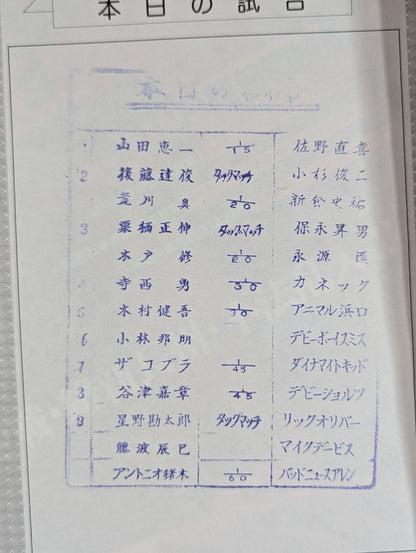 本日の試合
本日の
1 山田恵一 1/15 佐野直喜
2 後藤達俊 タッグマッチ 小杉俊二
荒川真 1/20 新倉史祐
3 栗栖正伸 タッグマッチ 保永昇男
木戸修 1/20 永源遥
4 寺西勇 1/30 カネック
5 木村健吾 1/30 アニマル浜口
6 小林邦明 デビーボーイスミス
7 ザコブラ 1/45 ダイナマイトキッド
8 谷津嘉章 1/45 デビーショルツ
9 星野勘太郎 タッグマッチ リックオリバー
藤波辰巳 マイクデービス
アントニオ猪木 1/60 バッドニュースアレン